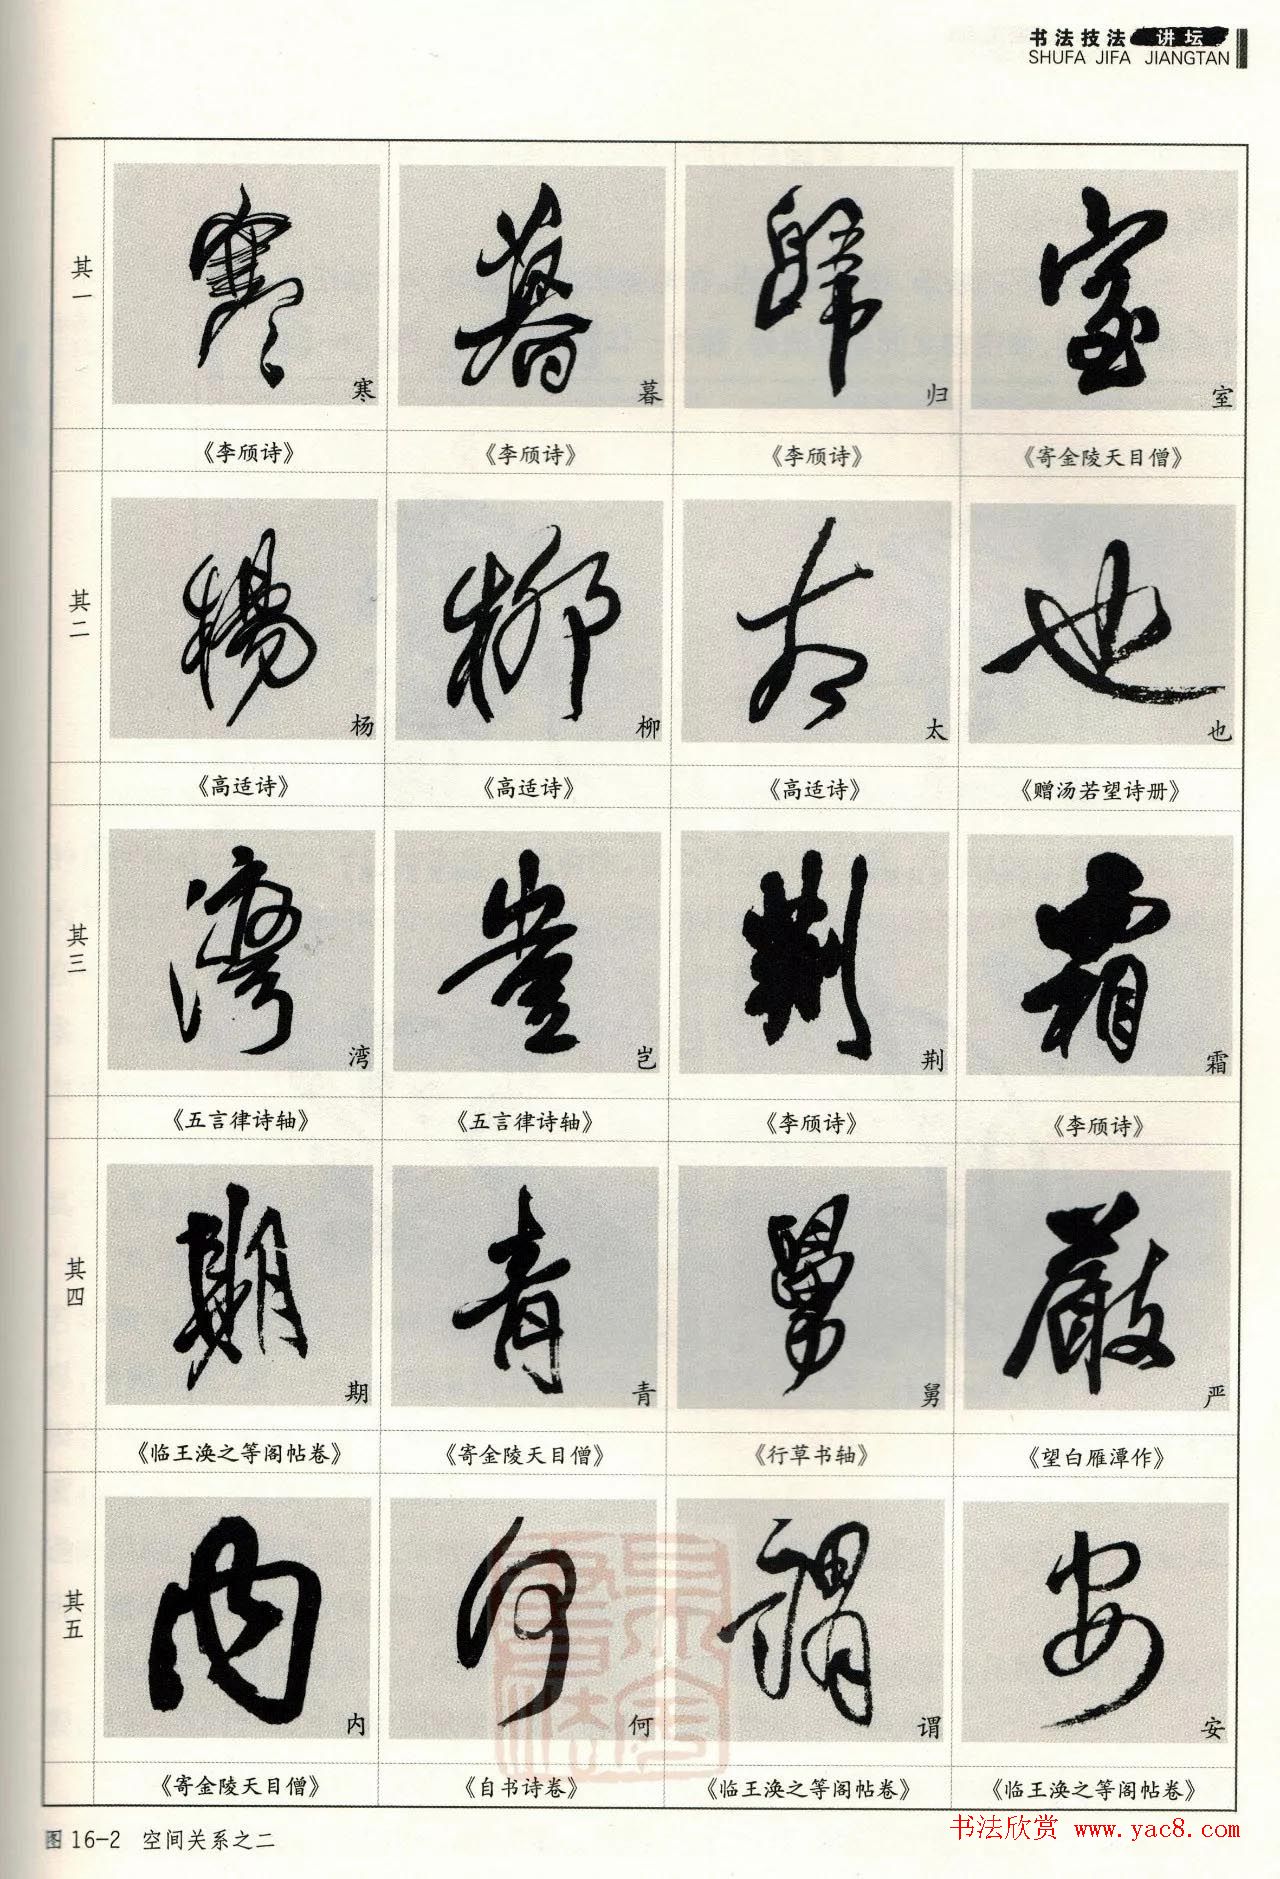 书法技法 讲坛
SHUFA JIFA JIANGTAN
其一
寒 暮 归 室
《李颀诗》 《李颀诗》 《李颀诗》 《寄金陵天目僧》
其二
杨 柳 太 也
《高适诗》 《高适诗》 《高适诗》 《赠汤若望诗册》
其三
湾 岂 荆 霜
《五言律诗轴》 《五言律诗轴》 《李颀诗》 《李颀诗》
其四
期 青 舅 严
《临王涣之等阁帖卷》 《寄金陵天目僧》 《行草书轴》 《望白雁潭作》
其五
内 何 谓 安
《寄金陵天目僧》 《自书诗卷》 《临王涣之等阁帖卷》 《临王涣之等阁帖卷》
图 16-2 空间关系之二
书法欣赏 www.yac8.com